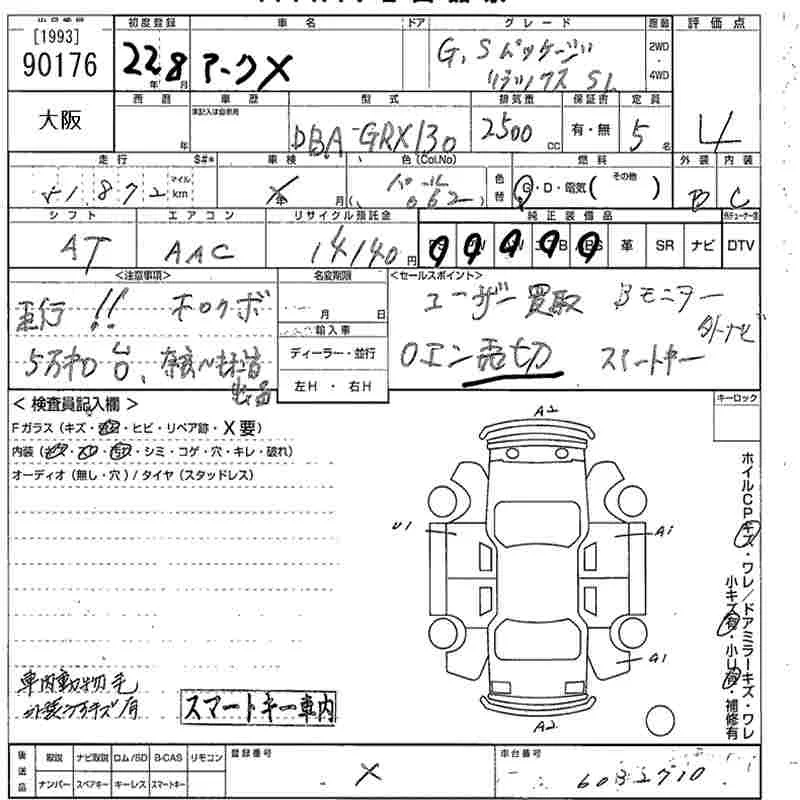 [1993]
90176
初度登録 車名 ドア グレード 評価点
22年 8月 マークX
G,Sパッケージ
リラックス SL
2WD・4WD
4
大阪
西暦 車歴 型式 排気量 保証書 定員
年 DBA-GRX130 2500cc 有・無 5名
走行 S#* 車検 色(Col.No) 燃料 外装 内装
51,872 マイル km
X 年 月
パール
(062)
色替
G・D・電気( その他 )
B C
シフト エアコン リサイクル預託金 純正装備品
AT AAC 14140円 革 SR ナビ DTV
<注意事項> 名変期限 <セールスポイント>
並行!! 木ロクボ
月 日
ユーザー買取 Bモニター
外ナビ
輸入車
ディーラー・並行
5万キロ台、
出品
左H・右H
0エン売切 スマートキー
< 検査員記入欄 >
キーロック
Fガラス(キズ・・ヒビ・リペア跡・X要)
内装(・・・シミ・コゲ・穴・キレ・破れ)
オーディオ(無し・穴)/タイヤ(スタッドレス)
A2
U1
A1
A1
A2
ホイルCPキズ・ワレ/ドアミラーキズ・ワレ
小キズ有・小U有・補修有
車内動物毛
外装 キズ有
スマートキー車内
後送品
取説 ナビ取説 ロム/SD B-CAS リモコン
ナンバー スペアキー キーレス スマートキー
登録番号
X
車台番号
6082710